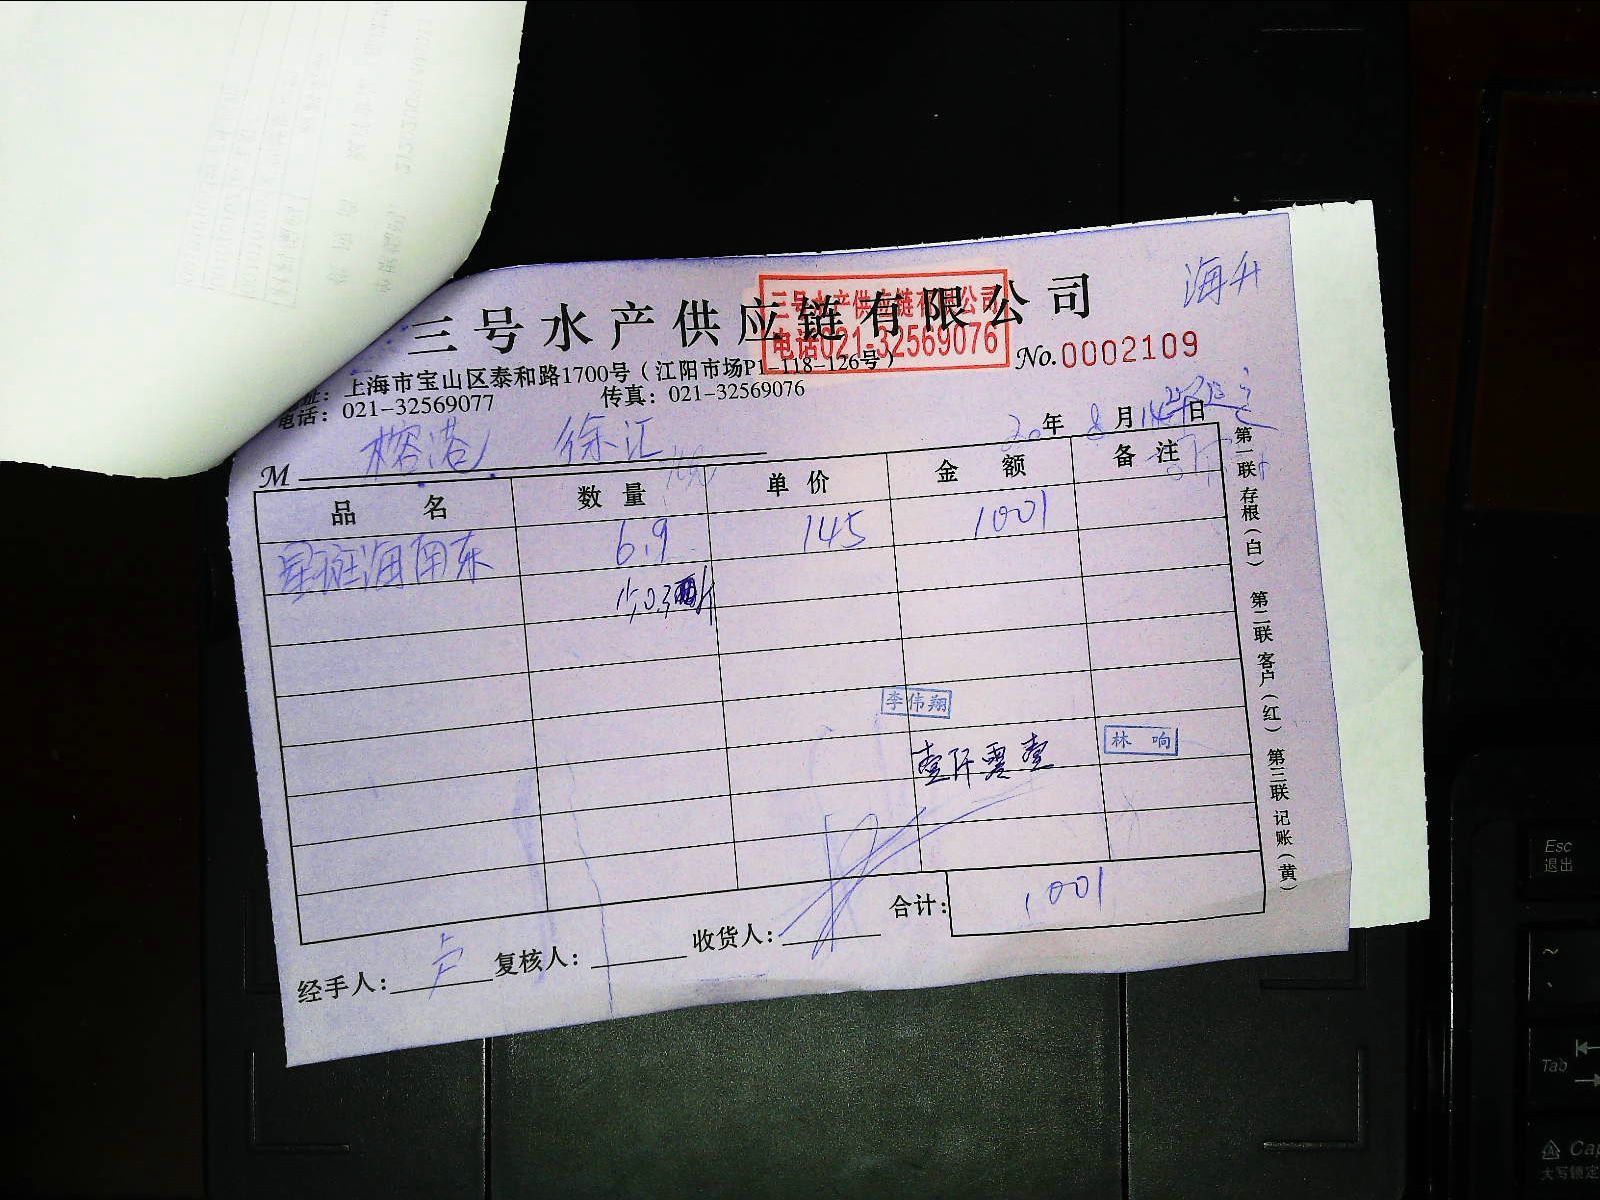 三号水产供应链有限公司
海升
三号水产供应链有限公司
电话021-32569076
No.0002109
址：上海市宝山区泰和路1700号（江阳市场P1-118-126号）
电话：021-32569077 传真：021-32569076
20年8月14日
M 榕港 徐汇
品名 数量 单价 金额 备注
星斑海南东 6.9 145 1001
李伟翔
林响
壹仟零壹
合计： 1001
经手人：卢 复核人： 收货人：
第一联 存根（白） 第二联 客户（红） 第三联 记账（黄）
Esc
退出
~
Tab
Cap
大写锁定